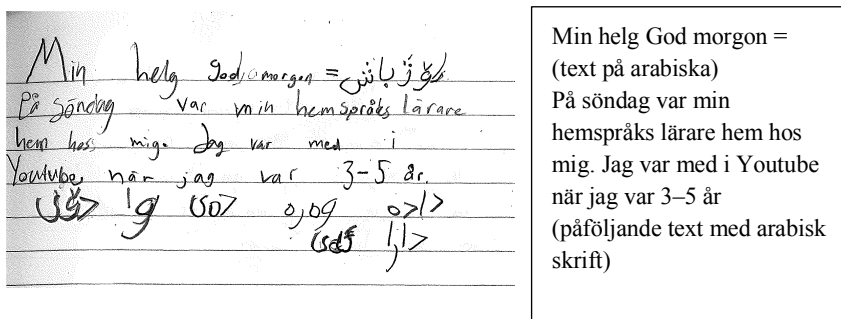 Min helg god morgon = ڕۆژباش
På söndag var min hemspråks lärare
hem hos mig. Jag var med i
Youtube när jag var 3-5 år.
Min helg God morgon =
(text på arabiska)
På söndag var min
hemspråks lärare hem hos
mig. Jag var med i Youtube
när jag var 3–5 år
(påföljande text med arabisk
skrift)